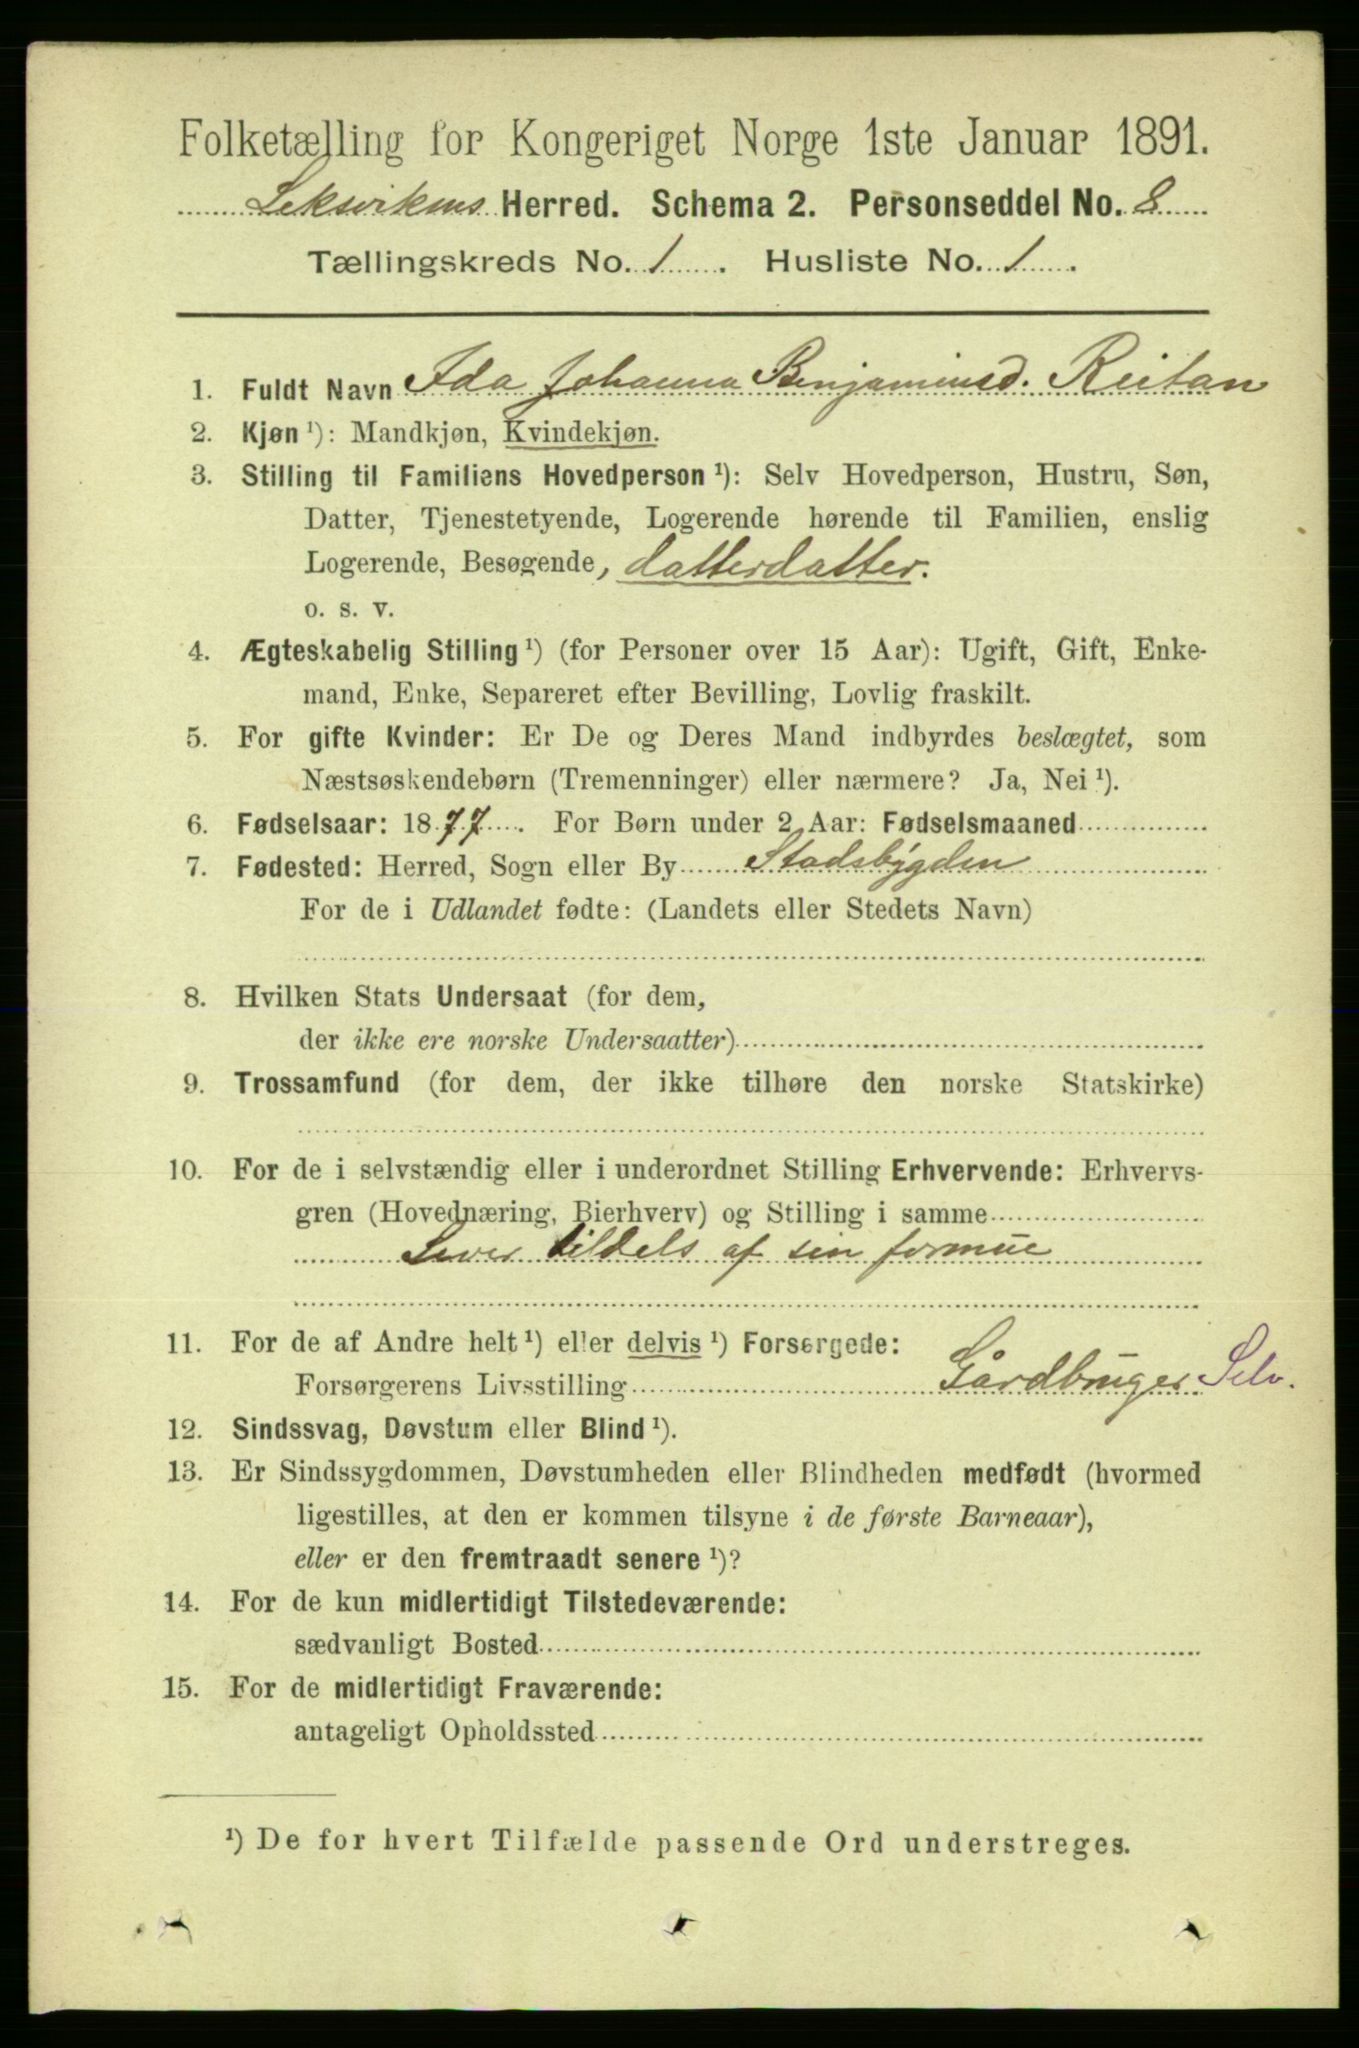 Folketælling for Kongeriget Norge 1ste Januar 1891.
Leksvikens Herred. Schema 2. Personseddel No. 8
Tællingskreds No. 1. Husliste No. 1.
1. Fuldt Navn Ida Johanna Benjaminsd. Reitan
2. Kjøn ¹): Mandkjøn, Kvindekjøn.
3. Stilling til Familiens Hovedperson ¹): Selv Hovedperson, Hustru, Søn,
Datter, Tjenestetyende, Logerende hørende til Familien, enslig
Logerende, Besøgende, datterdatter.
o. s. v.
4. Ægteskabelig Stilling ¹) (for Personer over 15 Aar): Ugift, Gift, Enke-
mand, Enke, Separeret efter Bevilling, Lovlig fraskilt.
5. For gifte Kvinder: Er De og Deres Mand indbyrdes beslægtet, som
Næstsøskendebørn (Tremenninger) eller nærmere? Ja, Nei ¹).
6. Fødselsaar: 1877. For Børn under 2 Aar: Fødselsmaaned
7. Fødested: Herred, Sogn eller By Stadsbygden
For de i Udlandet fødte: (Landets eller Stedets Navn)
8. Hvilken Stats Undersaat (for dem,
der ikke ere norske Undersaatter)
9. Trossamfund (for dem, der ikke tilhøre den norske Statskirke)
10. For de i selvstændig eller i underordnet Stilling Erhvervende: Erhvervs-
gren (Hovednæring, Bierhverv) og Stilling i samme
Lever tildels af sin formue
11. For de af Andre helt ¹) eller delvis ¹) Forsørgede:
Forsørgerens Livsstilling Gårdbruger Selv.
12. Sindssvag, Døvstum eller Blind ¹).
13. Er Sindssygdommen, Døvstumheden eller Blindheden medfødt (hvormed
ligestilles, at den er kommen tilsyne i de første Barneaar),
eller er den fremtraadt senere ¹)?
14. For de kun midlertidigt Tilstedeværende:
sædvanligt Bosted
15. For de midlertidigt Fraværende:
antageligt Opholdssted
¹) De for hvert Tilfælde passende Ord understreges.